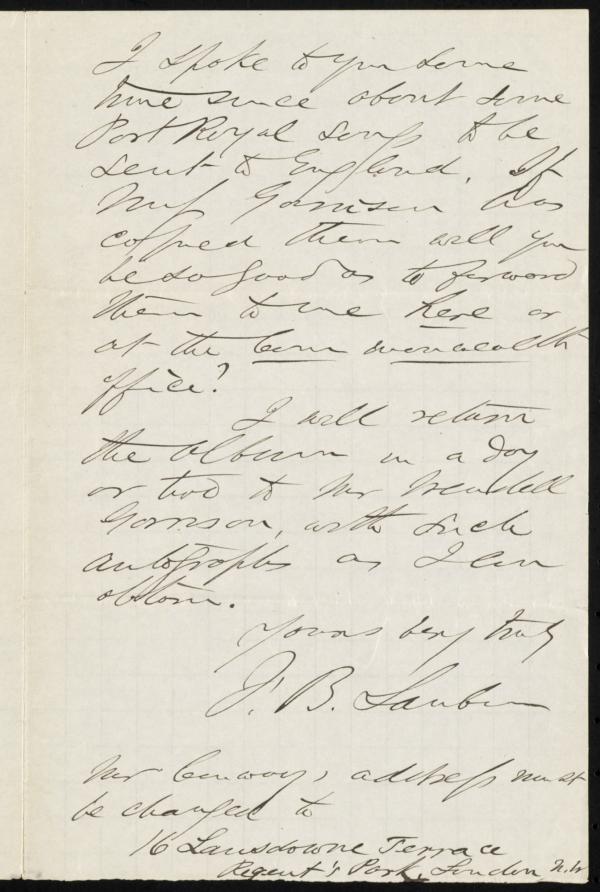 I spoke to you some
time since about some
Port Royal songs to be
sent to England. If
Miss Garrison has
copied them will you
be so good as to forward
them to me here or
at the Commonwealth
office?
I will return
the album in a day
or two to Mr Wendell
Garrison, with such
autographs as I can
obtain.
Yours very truly
F. B. Sanborn
Mr Conway's address must
be changed to
16 Lansdowne Terrace
Regent's Park, London N.W